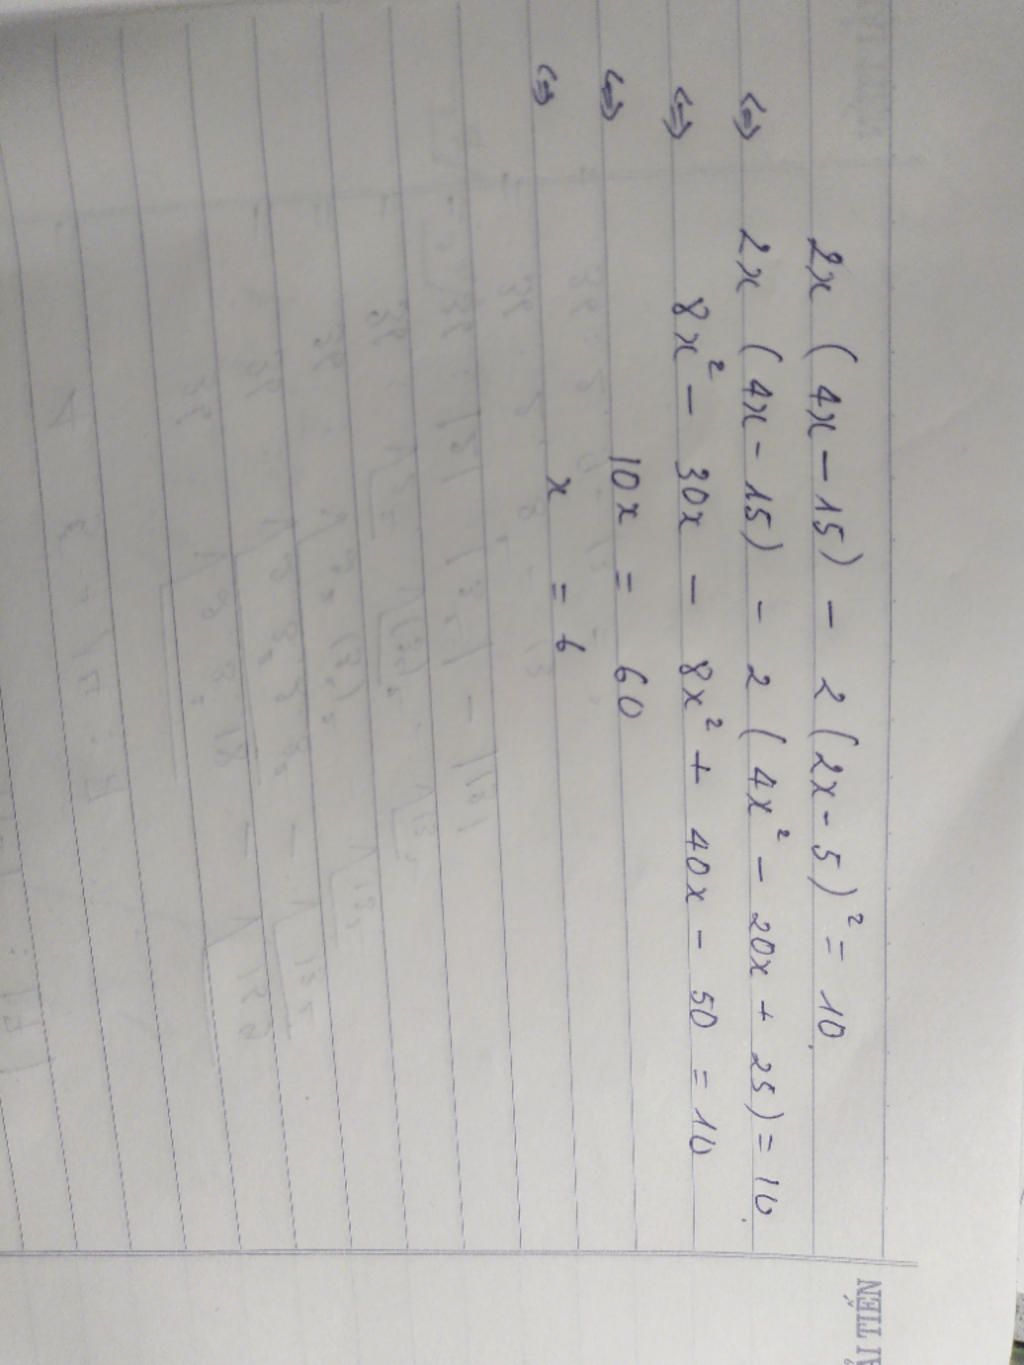 2x (4x - 15) - 2 (2x - 5)² = 10.
(=) 2x (4x - 15) - 2 (4x² - 20x + 25) = 10.
(=) 8x² - 30x - 8x² + 40x - 50 = 10
(=) 10x = 60
(=) x = 6